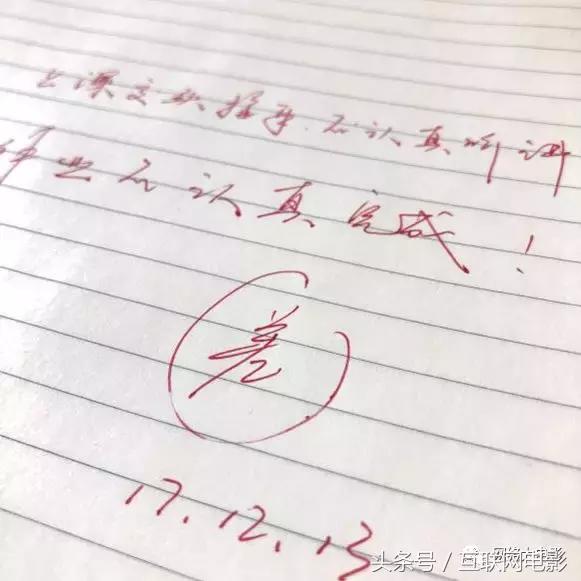 上课交头接耳.不认真听讲
作业不认真完成!
差
17.12.13
头条号 / 互联网电影